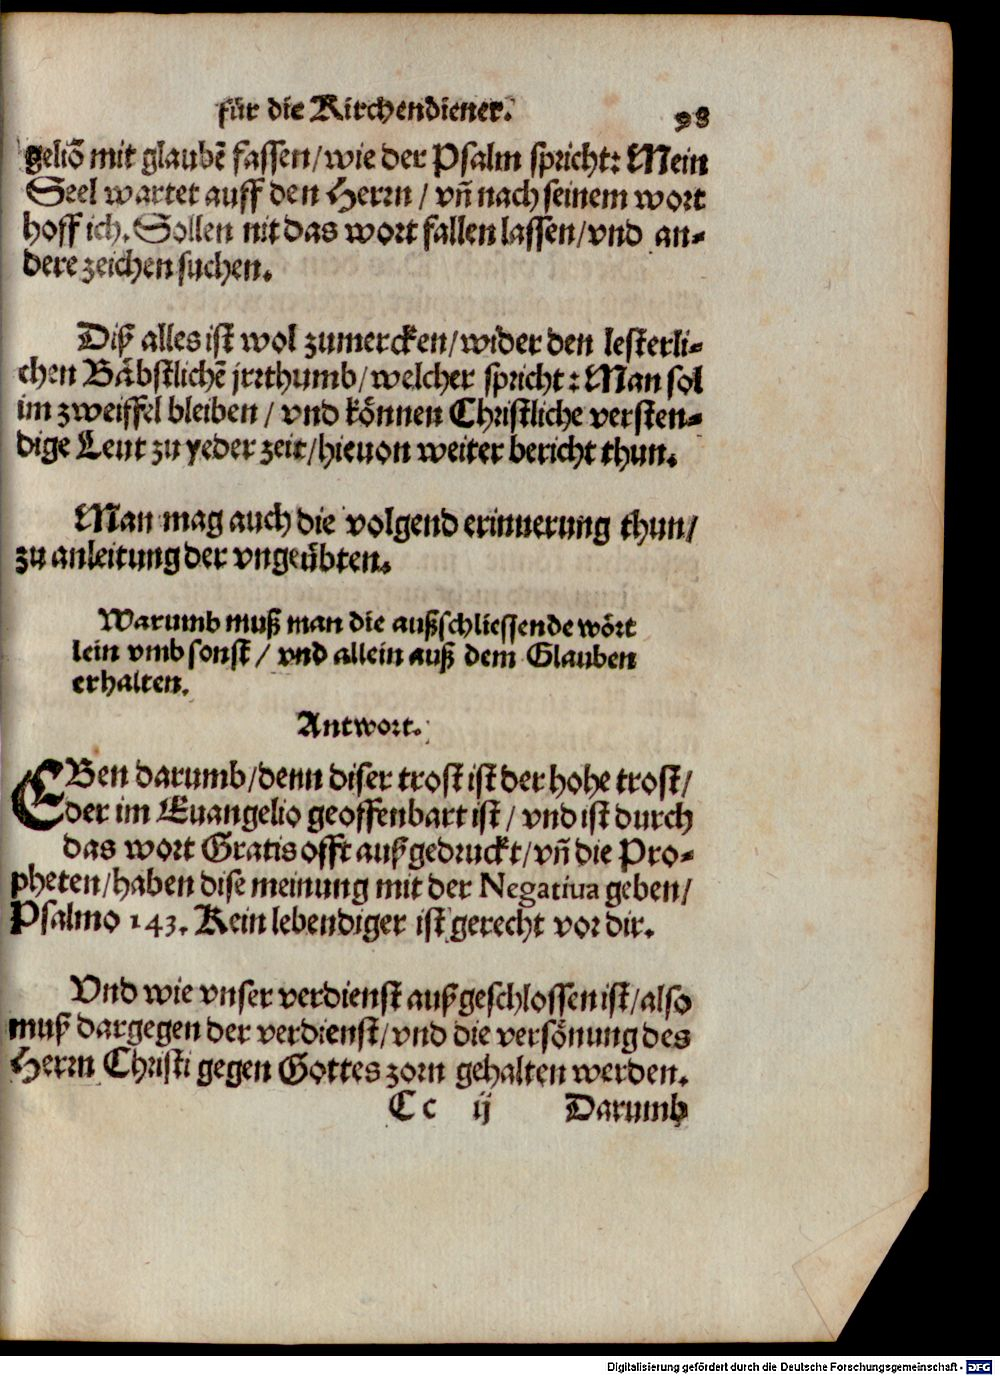 für die Kirchendiener. 98
geliõ mit glaubẽ fassen/wie der Psalm spricht: Mein
Seel wartet auff den Herrn / vñ nach seinem wort
hoff ich. Sollen nit das wort fallen lassen/vnd an-
dere zeichen suchen.
Diß alles ist wol zumercken/wider den lesterli-
chen Bäbstlichẽ jrrthumb/welcher spricht: Man sol
im zweiffel bleiben / vnd können Christliche versten-
dige Leut zu yeder zeit/hieuon weiter bericht thun.
Man mag auch die volgend erinnerung thun/
zu anleitung der vngeübten.
Warumb muß man die außschliessende wört
lein vmb sonst / vnd allein auß dem Glauben
erhalten.
Antwort.
EBen darumb/denn diser trost ist der hohe trost/
der im Euangelio geoffenbart ist / vnd ist durch
das wort Gratis offt außgedruckt/vñ die Pro-
pheten/haben dise meinung mit der Negatiua geben/
Psalmo 143. Kein lebendiger ist gerecht vor dir.
Vnd wie vnser verdienst außgeschlossen ist/also
muß dargegen der verdienst/vnd die versönung des
Herrn Christi gegen Gottes zorn gehalten werden.
C c ij Darumb
Digitalisierung gefördert durch die Deutsche Forschungsgemeinschaft - DFG